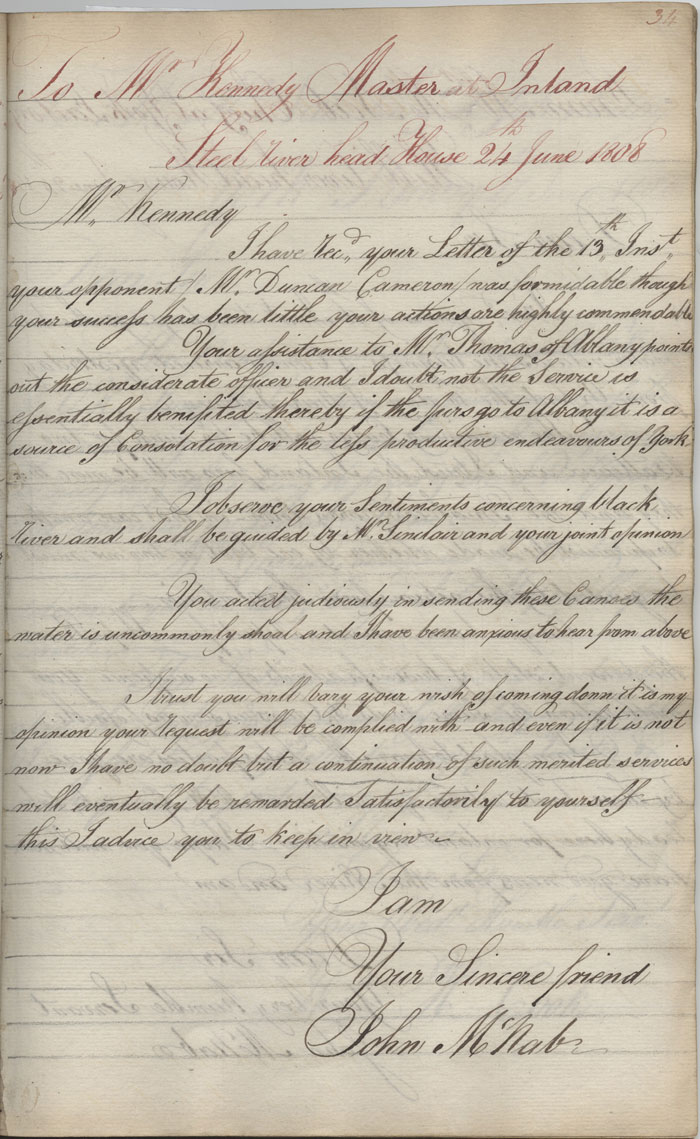 34
To Mr Kennedy Master at Inland
Steel River head House 24th June 1808
Mr Kennedy
I have Recd. your Letter of the 13th Inst.
your opponent / Mr Duncan Cameron / was formidable though
your success has been little your actions are highly commendable
Your assistance to Mr Thomas of Albany points
out the considerate officer and I doubt not the Service is
essentially benifited thereby if the furs go to Albany it is a
source of Consolation for the less productive endeavours of York
I observe your Sentiments concerning black
River and shall be guided by Mr Sinclair and your joint opinion
You acted judiously in sending these Canoes the
water is uncommonly shoal and I have been anxious to hear from above
I trust you will vary your wish of coming down it is my
opinion your Request will be complied with and even if it is not
now I have no doubt but a continuation of such merited services
will eventually be rewarded Satisfactorily to yourself
this I advice you to keep in view
I am
Your Sincere friend
John McNab